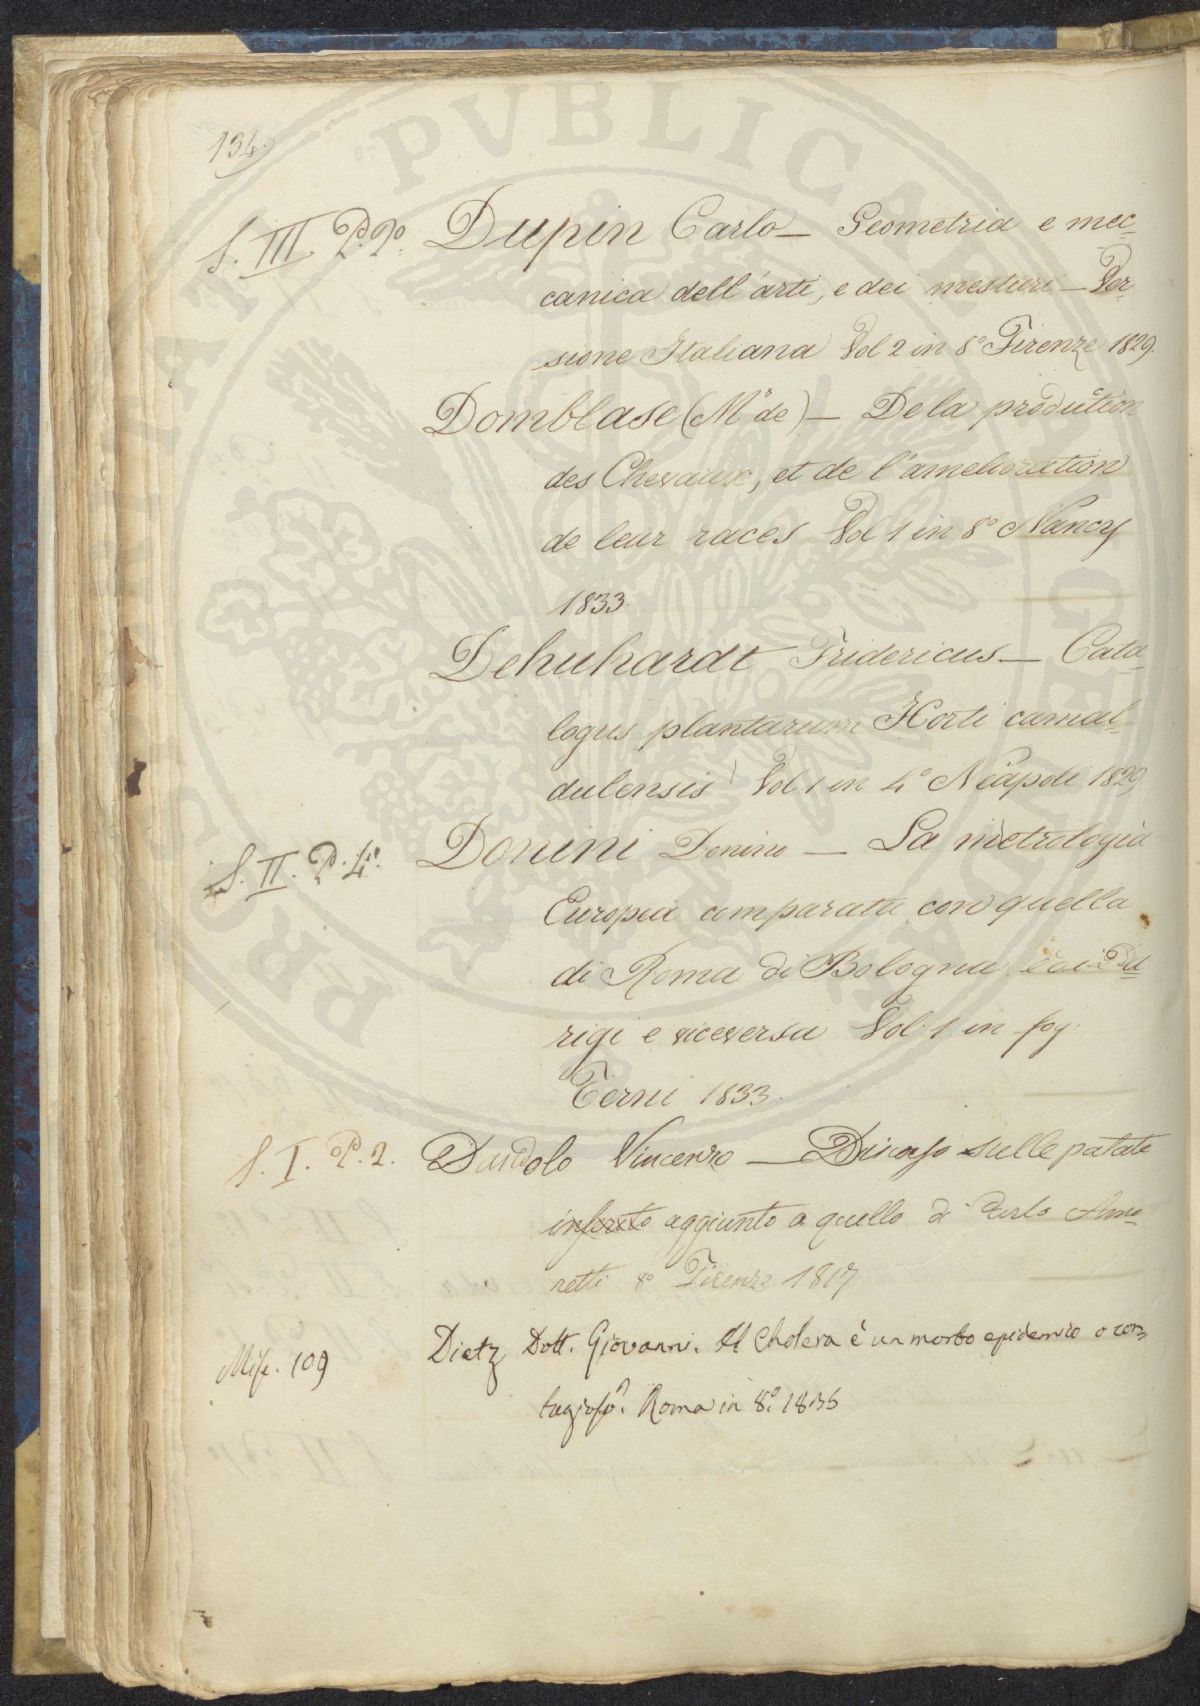 134.
S. III. P. 2º. Dupin Carlo — Geometria e mec-
canica dell'arti, e dei mestieri — Ver-
sione Italiana Vol 2 in 8º Firenze 1829.
Domblase (Mr de) — De la prodution
des Chevaux, et de l'amelioration
de leur races Vol 1 in 8º Nancy
1833.
Dehnhardt Fridericus — Cata-
logus plantarum Horti camal-
dulensis Vol 1 in 4º Neapoli 1829
S. II. P. 4º. Donini Donino — La metrologia
Europea comparata con quella
di Roma di Bologna, e di Pa-
rigi e viceversa Vol: 1 in fog:
Terni 1833.
S. I. P. 2. Dandolo Vincenzo — Discorso sulle patate
inserito aggiunto a quello di Carlo Amo-
retti 8º Firenze 1817
Misc. 109 Dietz Dott. Giovanni. Il Cholera è un morbo epidemico o con-
tagioso? Roma in 8º. 1835
PRO PRIVATA PVBLICAE GENVS